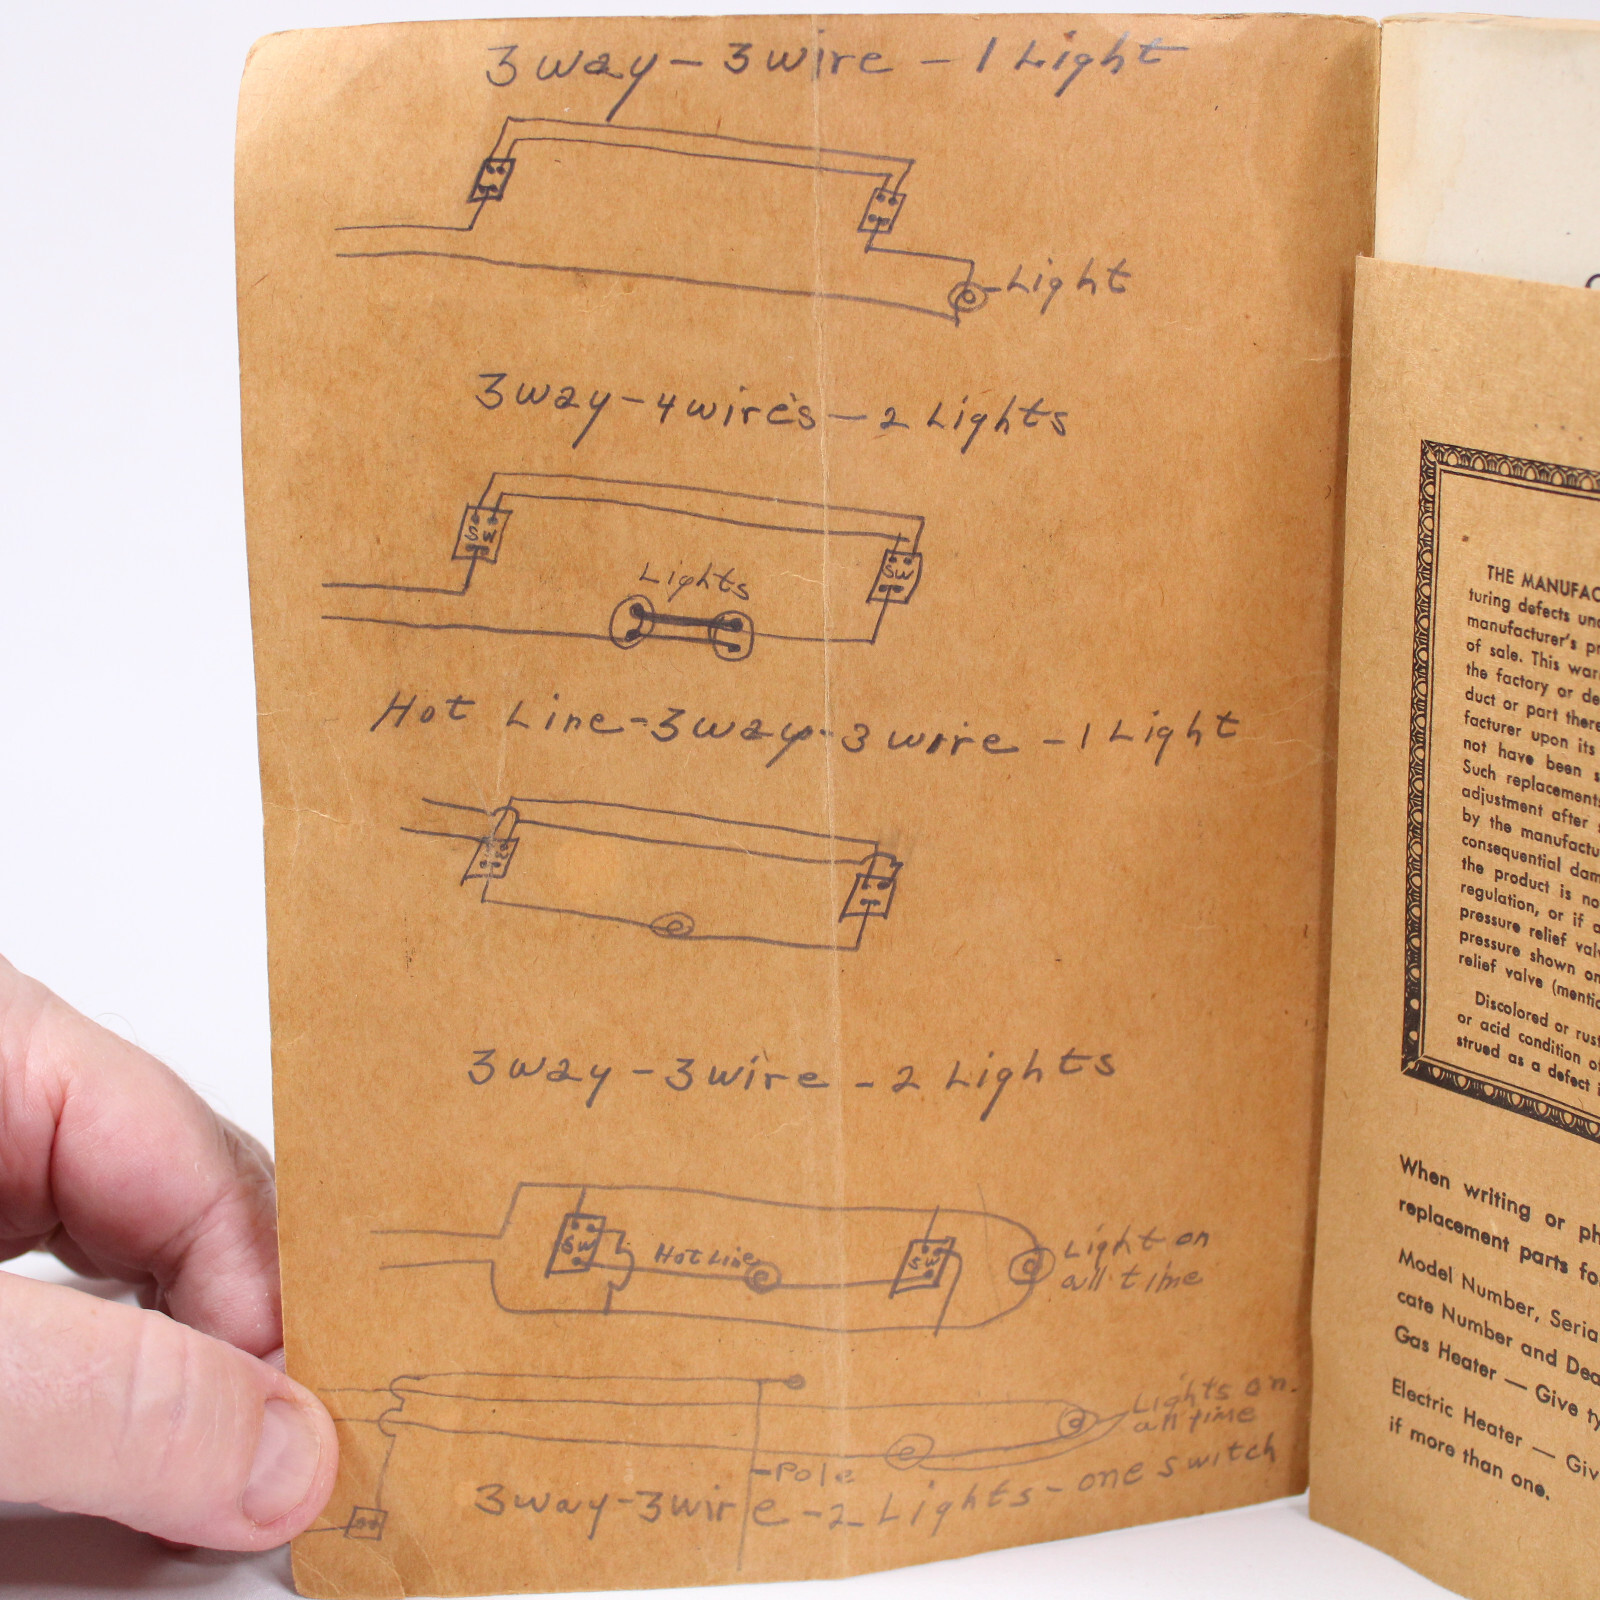 3 way - 3 wire - 1 Light
Light
3 way - 4 wires - 2 Lights
SW
Lights
SW
Hot Line - 3 way - 3 wire - 1 Light
3 way - 3 wire - 2 Lights
SW
Hot Line
SW
Light on
all time
Lights on
all time
Pole
3 way - 3 wire - 2 Lights - one switch
THE MANUFAC
turing defects und
manufacturer's pr
of sale. This warr
the factory or de
duct or part there
facturer upon its
not have been s
Such replacements
adjustment after s
by the manufactu
consequential dam
the product is no
regulation, or if a
pressure relief valv
pressure shown on
relief valve (mentio
Discolored or rust
or acid condition of
strued as a defect i
When writing or ph
replacement parts fo
Model Number, Seria
cate Number and Dea
Gas Heater — Give ty
Electric Heater — Giv
if more than one.